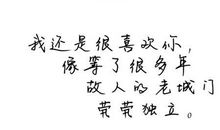 我还是很喜欢你，
像等了很多年
故人的老城门
茕茕独立。